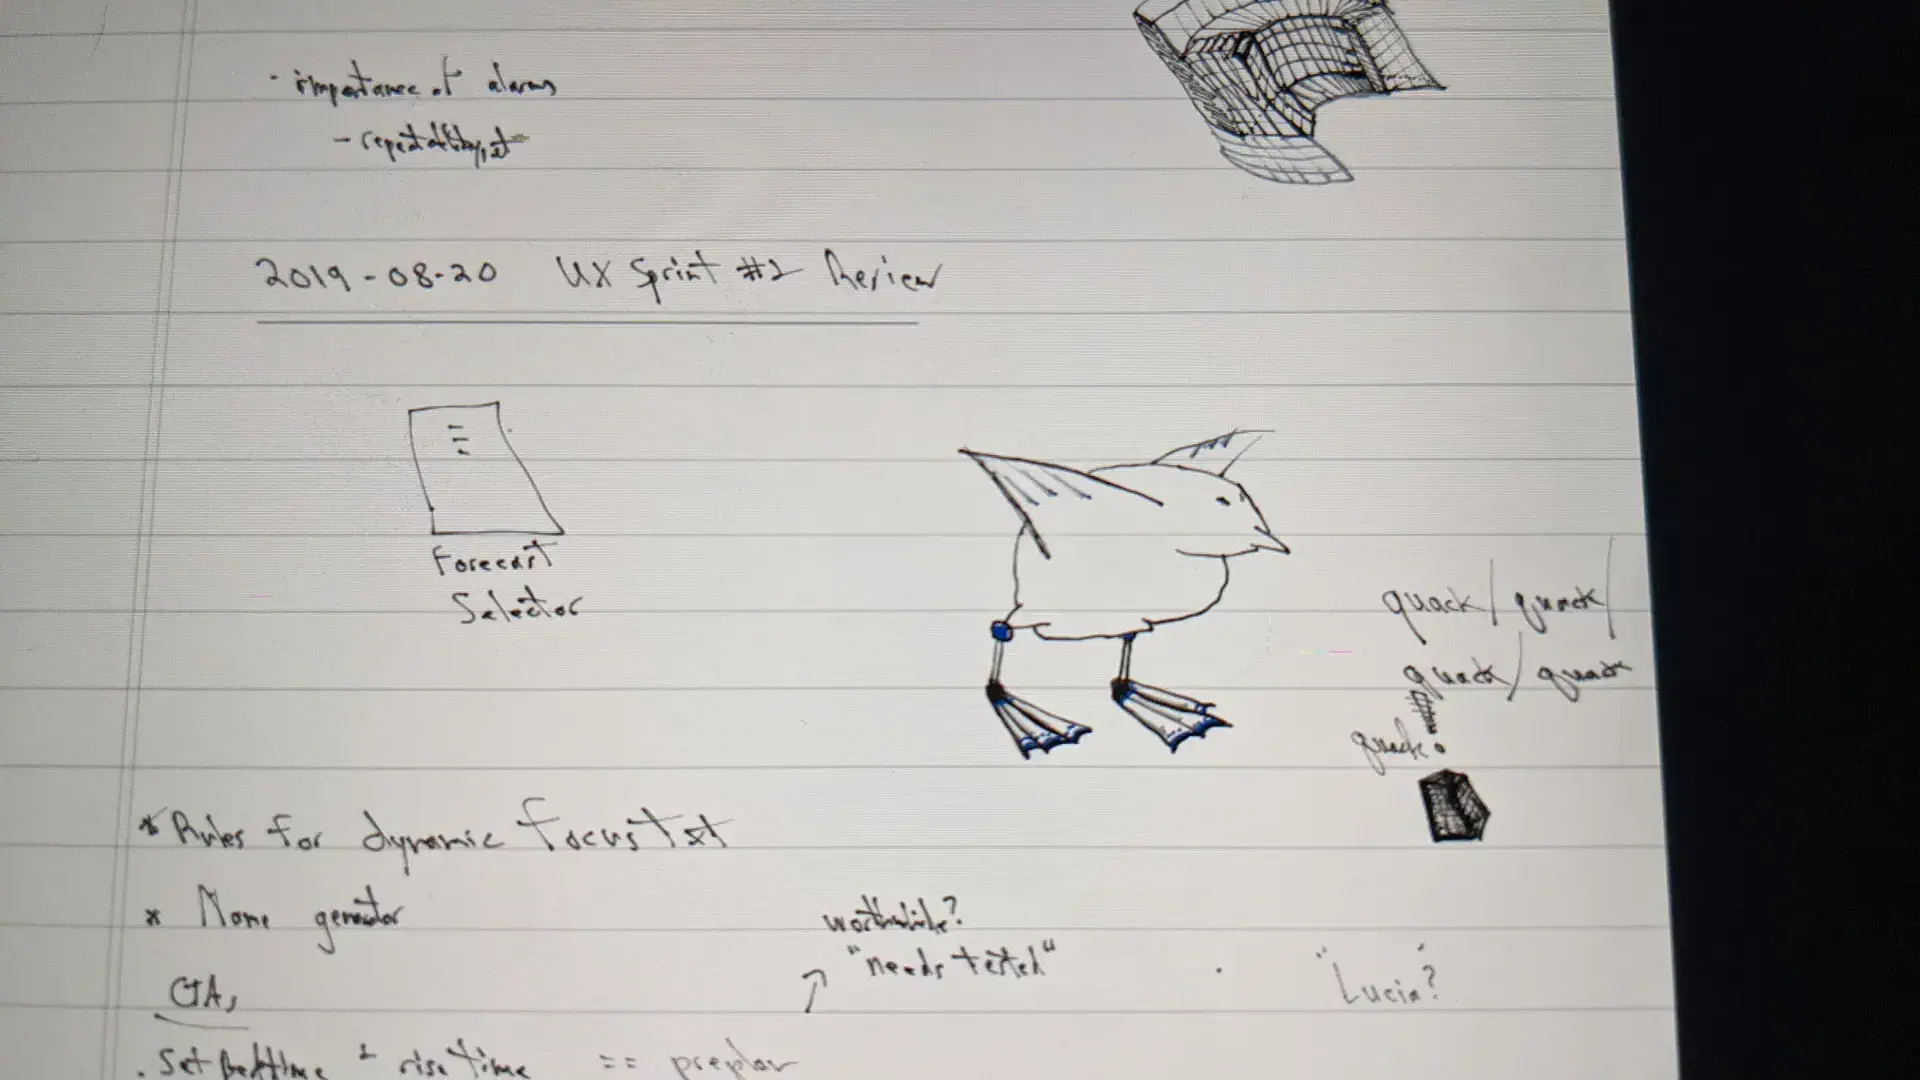 · importance of alarms
- repeatability, et
2019-08-20 UX Sprint #2 Review
Forecast
Selector
quack/ quack/
quack/ quack
quack.
* Rules for dynamic focus txt
* Name generator
worthwhile?
"needs tested"
"Lucia?"
CTAs
. Set Bedtime + rise time == preplan